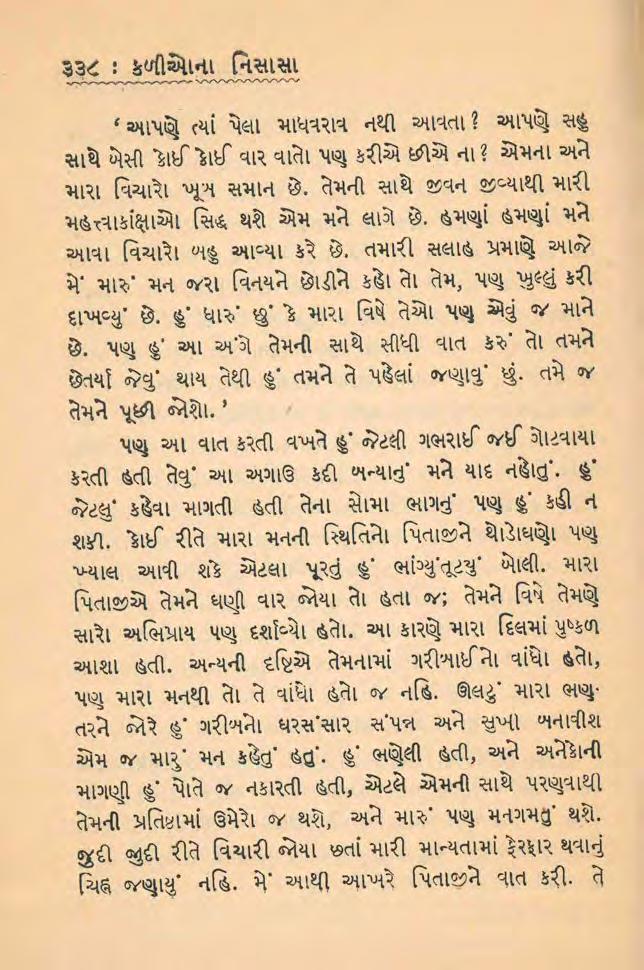 ૩૩૮ : કળીઓના નિસાસા
‘ આપણે ત્યાં પેલા માધવરાવ નથી આવતા ? આપણે સહુ
સાથે બેસી કોઈ કોઈ વાર વાતો પણ કરીએ છીએ ના ? એમના અને
મારા વિચારો ખૂબ સમાન છે. તેમની સાથે જીવન જીવ્યાથી મારી
મહત્ત્વાકાંક્ષાઓ સિદ્ધ થશે એમ મને લાગે છે. હમણાં હમણાં મને
આવા વિચારો બહુ આવ્યા કરે છે. તમારી સલાહ પ્રમાણે આજે
મેં મારું મન જરા વિનયને છોડીને કહો તો તેમ, પણ ખુલ્લું કરી
દાખવ્યું છે. હું ધારું છું કે મારા વિષે તેઓ પણ એવું જ માને
છે. પણ હું આ અંગે તેમની સાથે સીધી વાત કરું તો તમને
છેતર્યા જેવું થાય તેથી હું તમને તે પહેલાં જણાવું છું. તમે જ
તેમને પૂછી જોશો. ’
પણ આ વાત કરતી વખતે હું જેટલી ગભરાઈ જઈ ગોટવાયા
કરતી હતી તેવું આ અગાઉ કદી બન્યાનું મને યાદ નહોતું. હું
જેટલું કહેવા માગતી હતી તેના સોમા ભાગનું પણ હું કહી ન
શકી. કોઈ રીતે મારા મનની સ્થિતિનો પિતાજીને થોડોઘણો પણ
ખ્યાલ આવી શકે એટલા પૂરતું હું ભાંગ્યુંતૂટયું બોલી. મારા
પિતાજીએ તેમને ઘણી વાર જોયા તો હતા જ; તેમને વિષે તેમણે
સારો અભિપ્રાય પણ દર્શાવ્યો હતો. આ કારણે મારા દિલમાં પુષ્કળ
આશા હતી. અન્યની દૃષ્ટિએ તેમનામાં ગરીબાઈનો વાંધો હતો,
પણ મારા મનથી તો તે વાંધો હતો જ નહિ. ઊલટું મારા ભણ-
તરને જોરે હું ગરીબનો ઘરસંસાર સંપન્ન અને સુખી બનાવીશ
એમ જ મારું મન કહેતું હતું. હું ભણેલી હતી, અને અનેકોની
માગણી હું પોતે જ નકારતી હતી, એટલે એમની સાથે પરણવાથી
તેમની પ્રતિષ્ઠામાં ઉમેરો જ થશે, અને મારું પણ મનગમતું થશે.
જુદી જુદી રીતે વિચારી જોયા છતાં મારી માન્યતામાં ફેરફાર થવાનું
ચિહ્ન જણાયું નહિ. મેં આથી આખરે પિતાજીને વાત કરી. તે